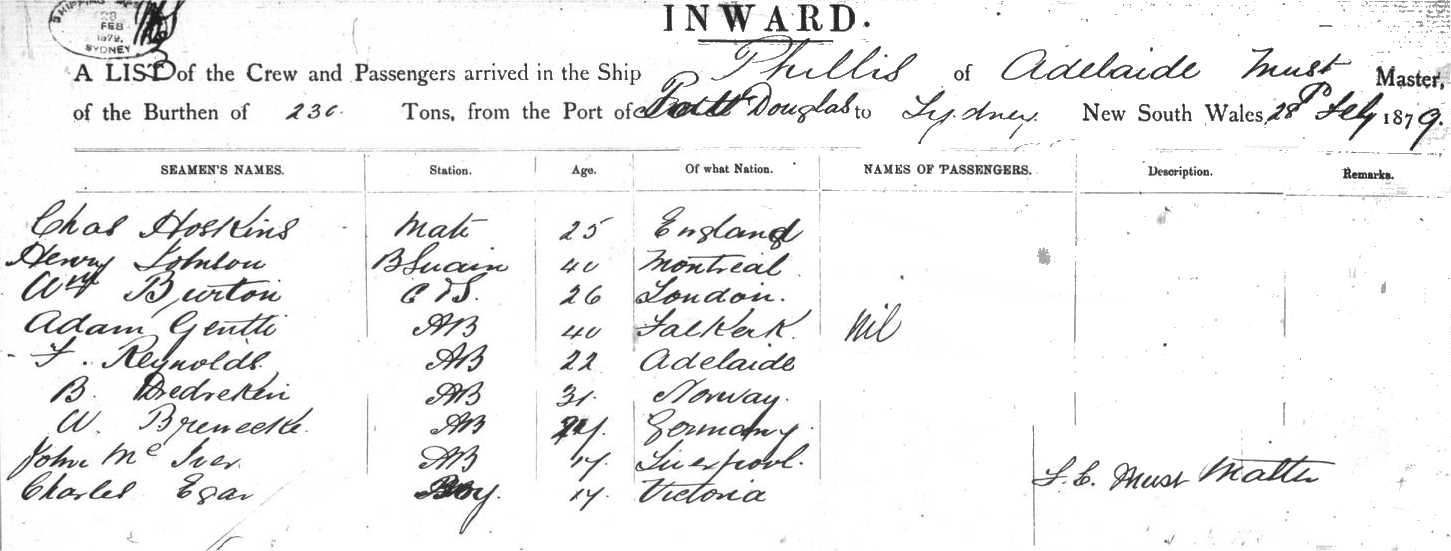 SHIPPING
28
FEB
1879.
SYDNEY
INWARD.
A LIST of the Crew and Passengers arrived in the Ship Phillis of Adelaide Must Master,
of the Burthen of 230. Tons, from the Port of Port Douglas to Sydney New South Wales, 28th Feby 1879.
SEAMEN'S NAMES. Station. Age. Of what Nation. NAMES OF PASSENGERS. Description. Remarks.
Chas Hoskins Mate 25 England
Henry Johnson BSuain 40 Montreal
Wm Burton C &S. 26 London.
Adam Gentli AB 40 Falkerk. Nil
F. Reynolds. AB 22 Adelaide
B. Dredrekin AB 31. Norway.
W. Brenecke. AB Germany.
John Mc Iver AB 17. Liverpool.
Charles Egar Boy. 17. Victoria
Must Master